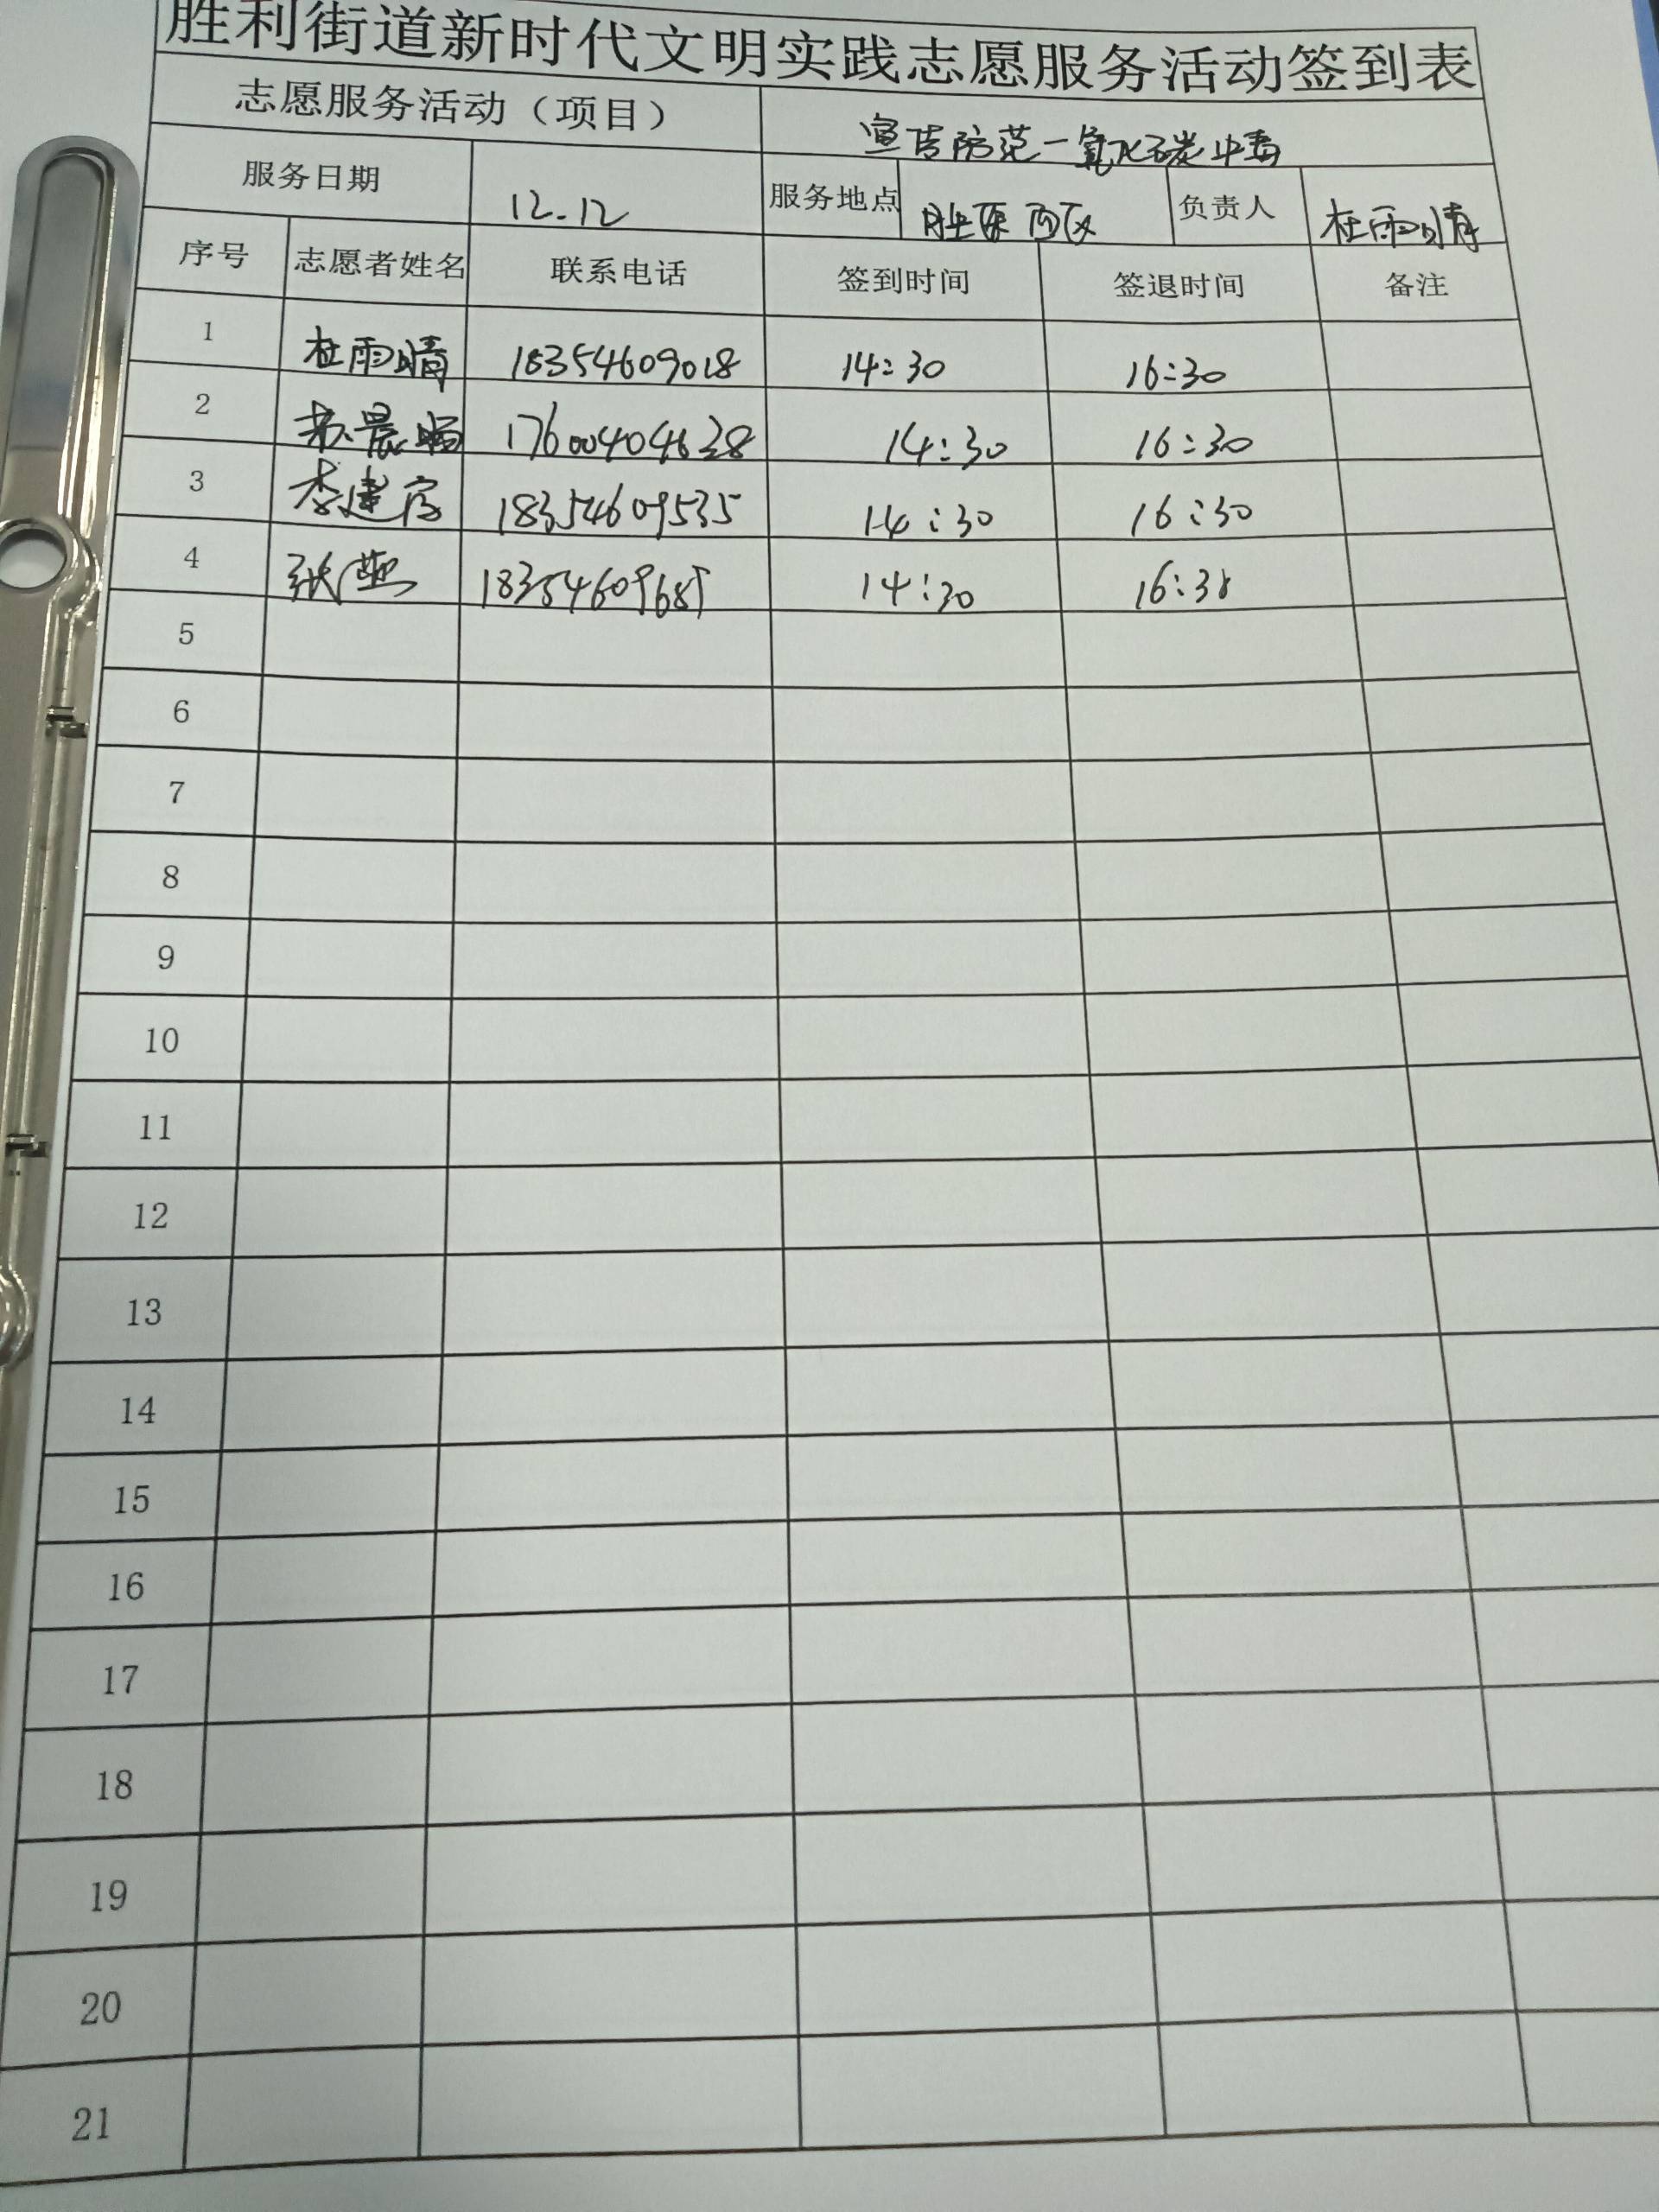 胜利街道新时代文明实践志愿服务活动签到表
志愿服务活动（项目） 宣传防范一氧化碳中毒
服务日期 12.12 服务地点 胜东西区 负责人 杜雨晴
序号 志愿者姓名 联系电话 签到时间 签退时间 备注
1 杜雨晴 18354609018 14:30 16:30
2 17600404628 14:30 16:30
3 18354609535 14:30 16:30
4 张燕 14:30 16:30
5
6
7
8
9
10
11
12
13
14
15
16
17
18
19
20
21